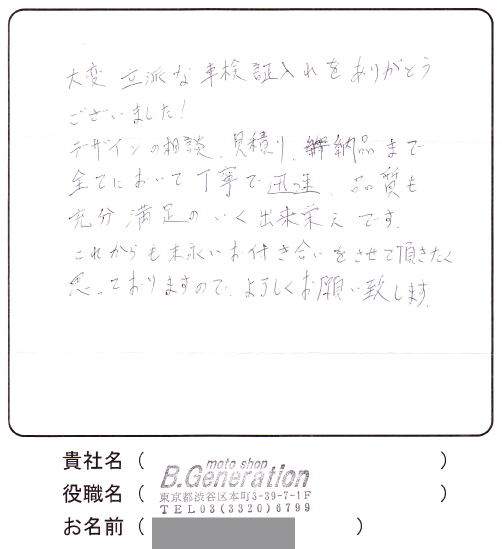 大変 立派な 車検証入れをありがとう
ございました!
デザインの相談、見積り、納品まで
全てにおいて丁寧で迅速、品質も
充分満足のいく出来栄えです。
これからも末永いお付き合いをさせて頂きたく
思っておりますので、よろしくお願い致します。
貴社名（ moto shop ）
B.Generation
役職名（ 東京都渋谷区本町3-39-7-1F ）
TEL03(3320)6799
お名前（ ）